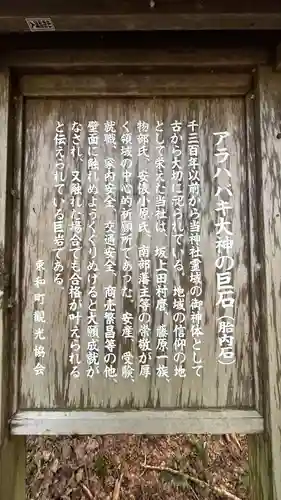 アラハバキ大神の巨石（胎内石）
千三百年以前から当神社霊域の御神体として
古から大切に祀られている。地域の信仰の地
として栄えた当社は、坂上田村麿、藤原一族、
物部氏、安俵小原氏、南部藩主等の崇敬が厚
く領域の中心的祈願所であった。安産、受験、
就職、家内安全、交通安全、商売繁昌等の他、
壁面に触れぬようくぐりぬけると大願成就が
なされ、又触れた場合でも合格が叶えられる
と伝えられている巨岩である。
東和町観光協会